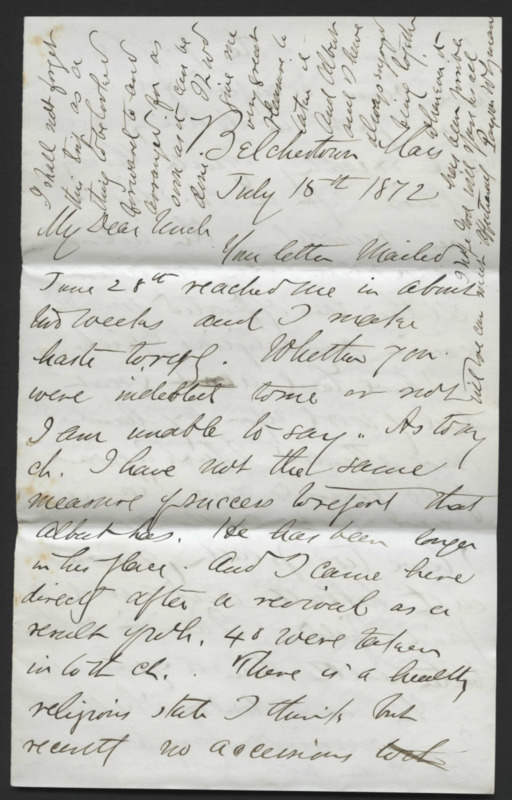 Belchertown Mass
July 18th 1872
My Dear Uncle
Your letter Mailed
June 28th reached me in about
two weeks and I make
haste to reply. Whether you
were indebted to me or not
I am unable to say. As to my
ch. I have not the same
measure of success to report that
Albert has. He has been longer
in his place. And I came here
directly after a revival as a
result of wh. 40 were taken
into th ch. There is a healthy
religious state I think but
recently no accessions
I shall not forget
this trip as a
thing to be looked
forward to and
arranged for as
soon as it can be
done. It wd
give me
great
pleasure to
take it
And Albert
and I have
always enjoyed
being together
whenever it
has been possible
I hope God will spare us all
till we can meet